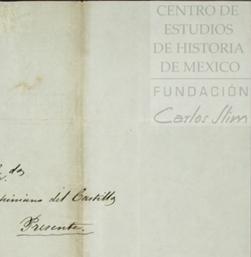 CENTRO DE
ESTUDIOS
DE HISTORIA
DE MEXICO
FUNDACIÓN
Carlos Slim
del Castillo
Presente.